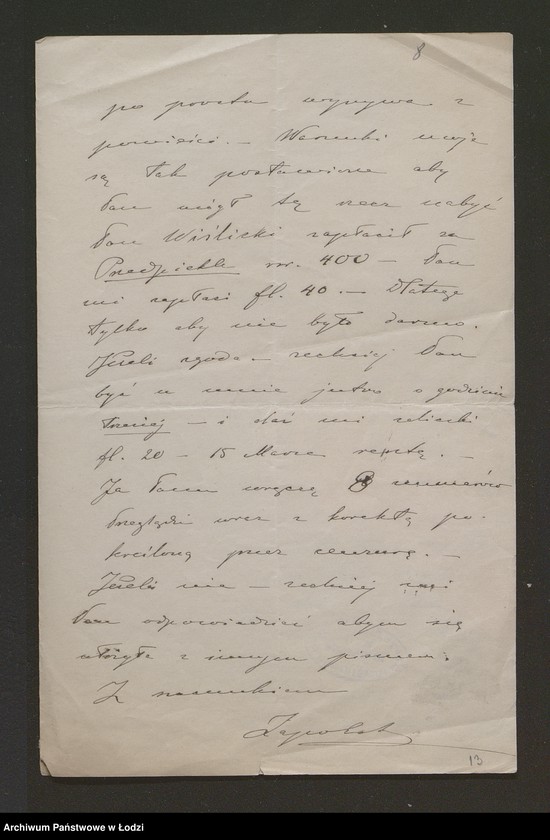 8
po prostu wyrywa z
powieści. – Warunki moje
są tak postawione aby
Pan mógł tę rzecz nabyć
Pan Wiślicki zapłacił za
Przedpiekle rs. 400 – Pan
mi zapłaci fl. 40. – Dlatego
tylko aby nie było darmo.
Jeżeli zgoda – zechciej Pan
być u mnie jutro o godzinie
trzeciej – i dać mi zaliczki
fl. 20 – 15 Marca resztę. –
Ja Panu wręczę numerów
Przeglądu wraz z korektą po-
kreśloną przez cenzurę. –
Jeżeli nie – zechciej mi
Pan odpowiedzieć abym się
ułożyła z innym pismem.
Z szacunkiem
Zapolska
13
Archiwum Państwowe w Łodzi